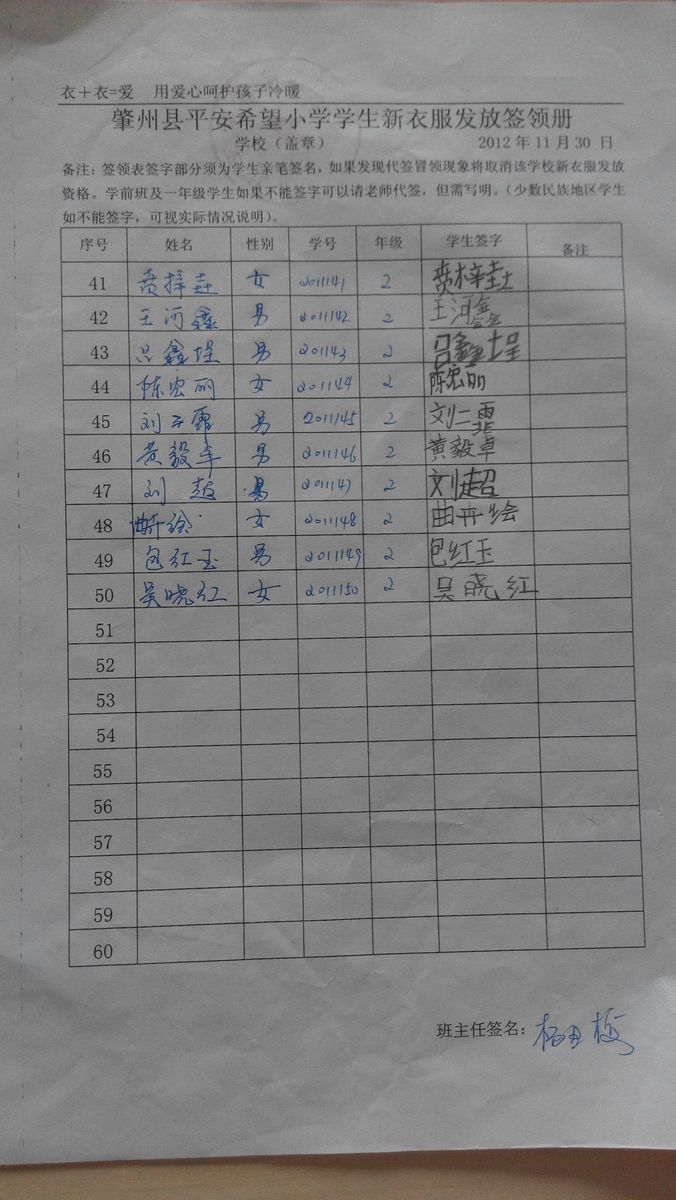 衣＋衣=爱 用爱心呵护孩子冷暖
肇州县平安希望小学学生新衣服发放签领册
学校（盖章） 2012 年 11 月 30 日
备注：签领表签字部分须为学生亲笔签名，如果发现代签冒领现象将取消该学校新衣服发放
资格。学前班及一年级学生如果不能签字可以请老师代签，但需写明。（少数民族地区学生
如不能签字，可视实际情况说明）。
序号 姓名 性别 学号 年级 学生签字 备注
41 女 2011141 2
42 王河鑫 男 2011142 2 王河鑫
43 吕鑫埕 男 201143 2 吕鑫埕
44 陈宏丽 女 2011144 2 陈宏丽
45 刘 男 2011145 2 刘一霏
46 黄毅卓 男 2011146 2 黄毅卓
47 刘超 男 2011147 2 刘超
48 女 2011148 2 曲卉绘
49 包红玉 男 2011149 2 包红玉
50 吴晓红 女 2011150 2 吴晓红
51
52
53
54
55
56
57
58
59
60
班主任签名：